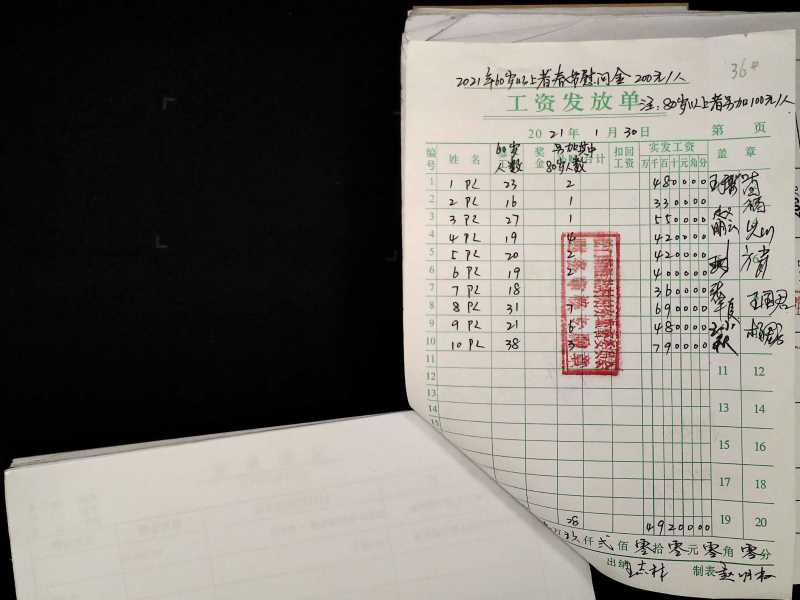 36#
2021年60岁以上者春节慰问金200元/人
工资发放单 注:80岁以上者另加100元/人
2021年1月30日 第 页
编号 姓名 60岁人数 奖金 另加其中80岁人数 合计 扣回工资 实发工资 万千百十元角分 盖章
1 1 PL 23 2 480000
2 2 PL 16 1 330000
3 3 PL 27 1 550000
4 4 PL 19 4 420000
5 5 PL 20 2 420000
6 6 PL 19 2 400000
7 7 PL 18 360000 王国君
8 8 PL 31 7 690000
9 9 PL 21 6 480000
10 10 PL 38 3 790000
11 11 12
12
13 13 14
14
15 15 16
17 18
28 4920000 19 20
仟 贰 佰 零 拾 零 元 零 角 零 分
出纳 王志林 制表 赵明